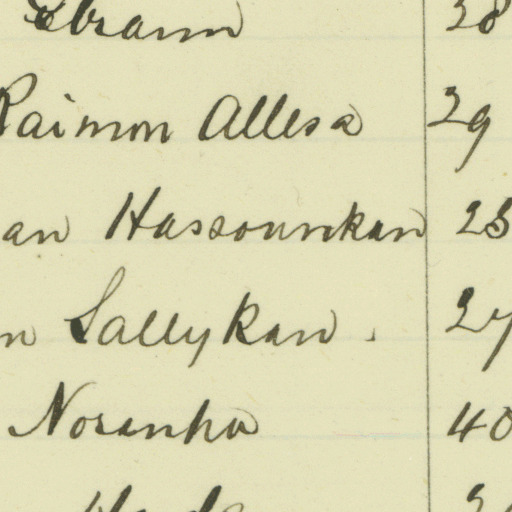 Ebram 38
Raimon Allesa 29
an Hassounkan 25
n Sallykan. 27
Noranha 40